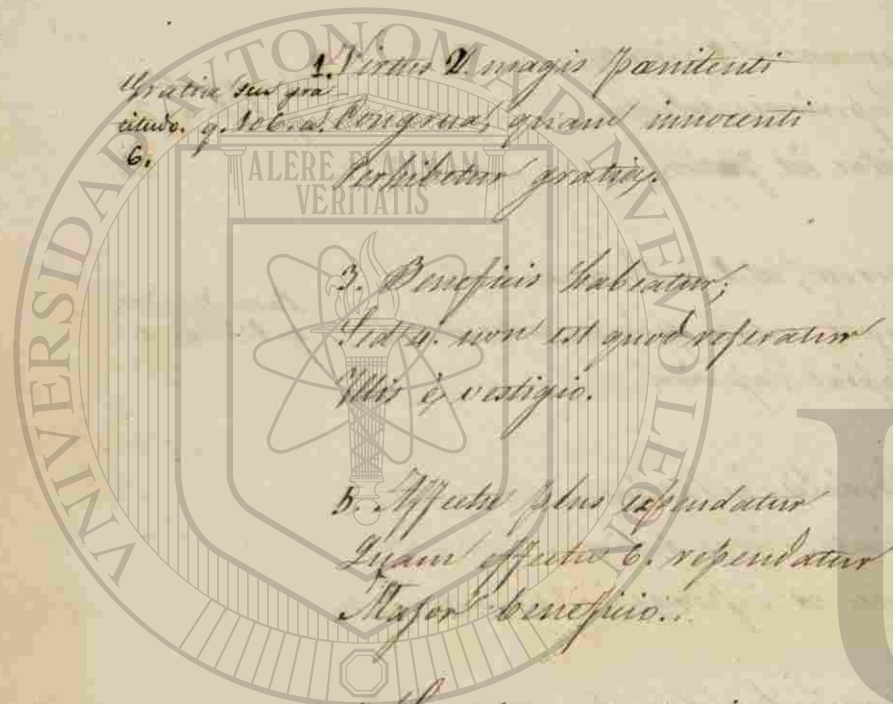 Gratia seu gra
titudo. q. 106. a.
6.
1. Virtus 2. magis pœnitenti
Congrua, quam innocenti
Perhibetur gratia.
3. Beneficis habeatur;
Sed 4. non est quod referatur
Illis è vestigio.
5. Affectu plus expendatur
Quam effectu 6. rependatur
Major beneficio.
UNIVERSIDAD AUTONOMA DE NUEVO LEON
ALERE FLAMMAM
VERITATIS